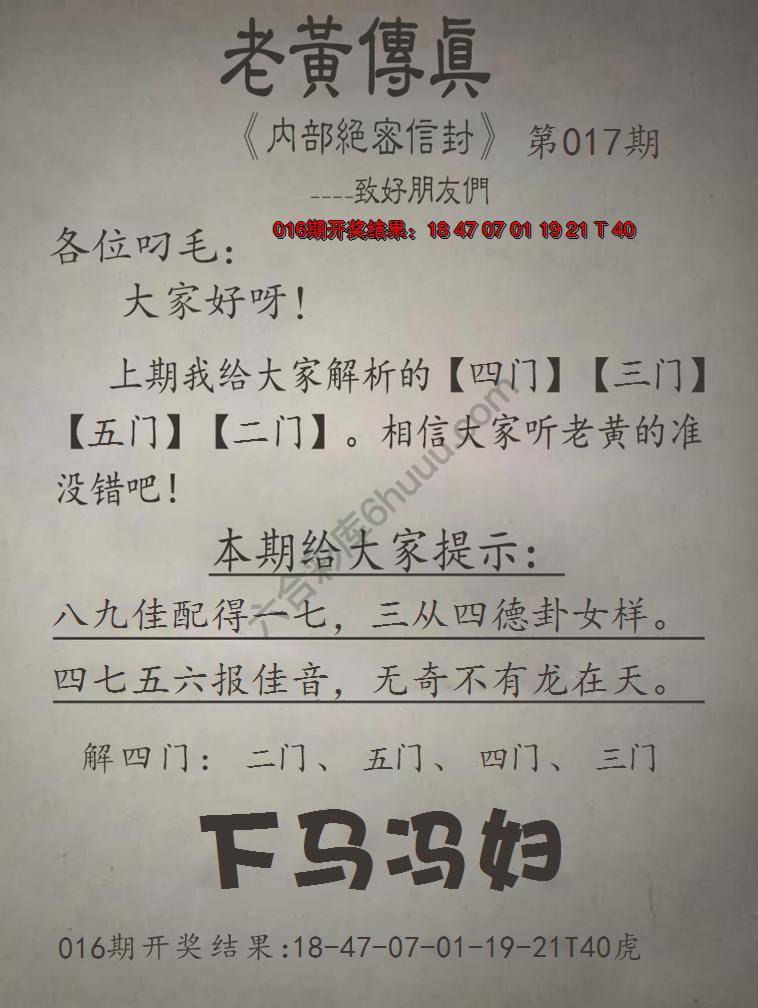 老黃傳眞
《内部絕密信封》 第017期
----致好朋友們
016期开奖结果：18 47 07 01 19 21 T 40
各位叼毛：
大家好呀！
上期我给大家解析的【四门】【三门】
【五门】【二门】。相信大家听老黄的准
没错吧！
六合彩库6huuu.com
本期给大家提示：
八九佳配得一七，三从四德卦女样。
四七五六报佳音，无奇不有龙在天。
解四门：二门、五门、四门、三门
下马冯妇
016期开奖结果:18-47-07-01-19-21T40虎